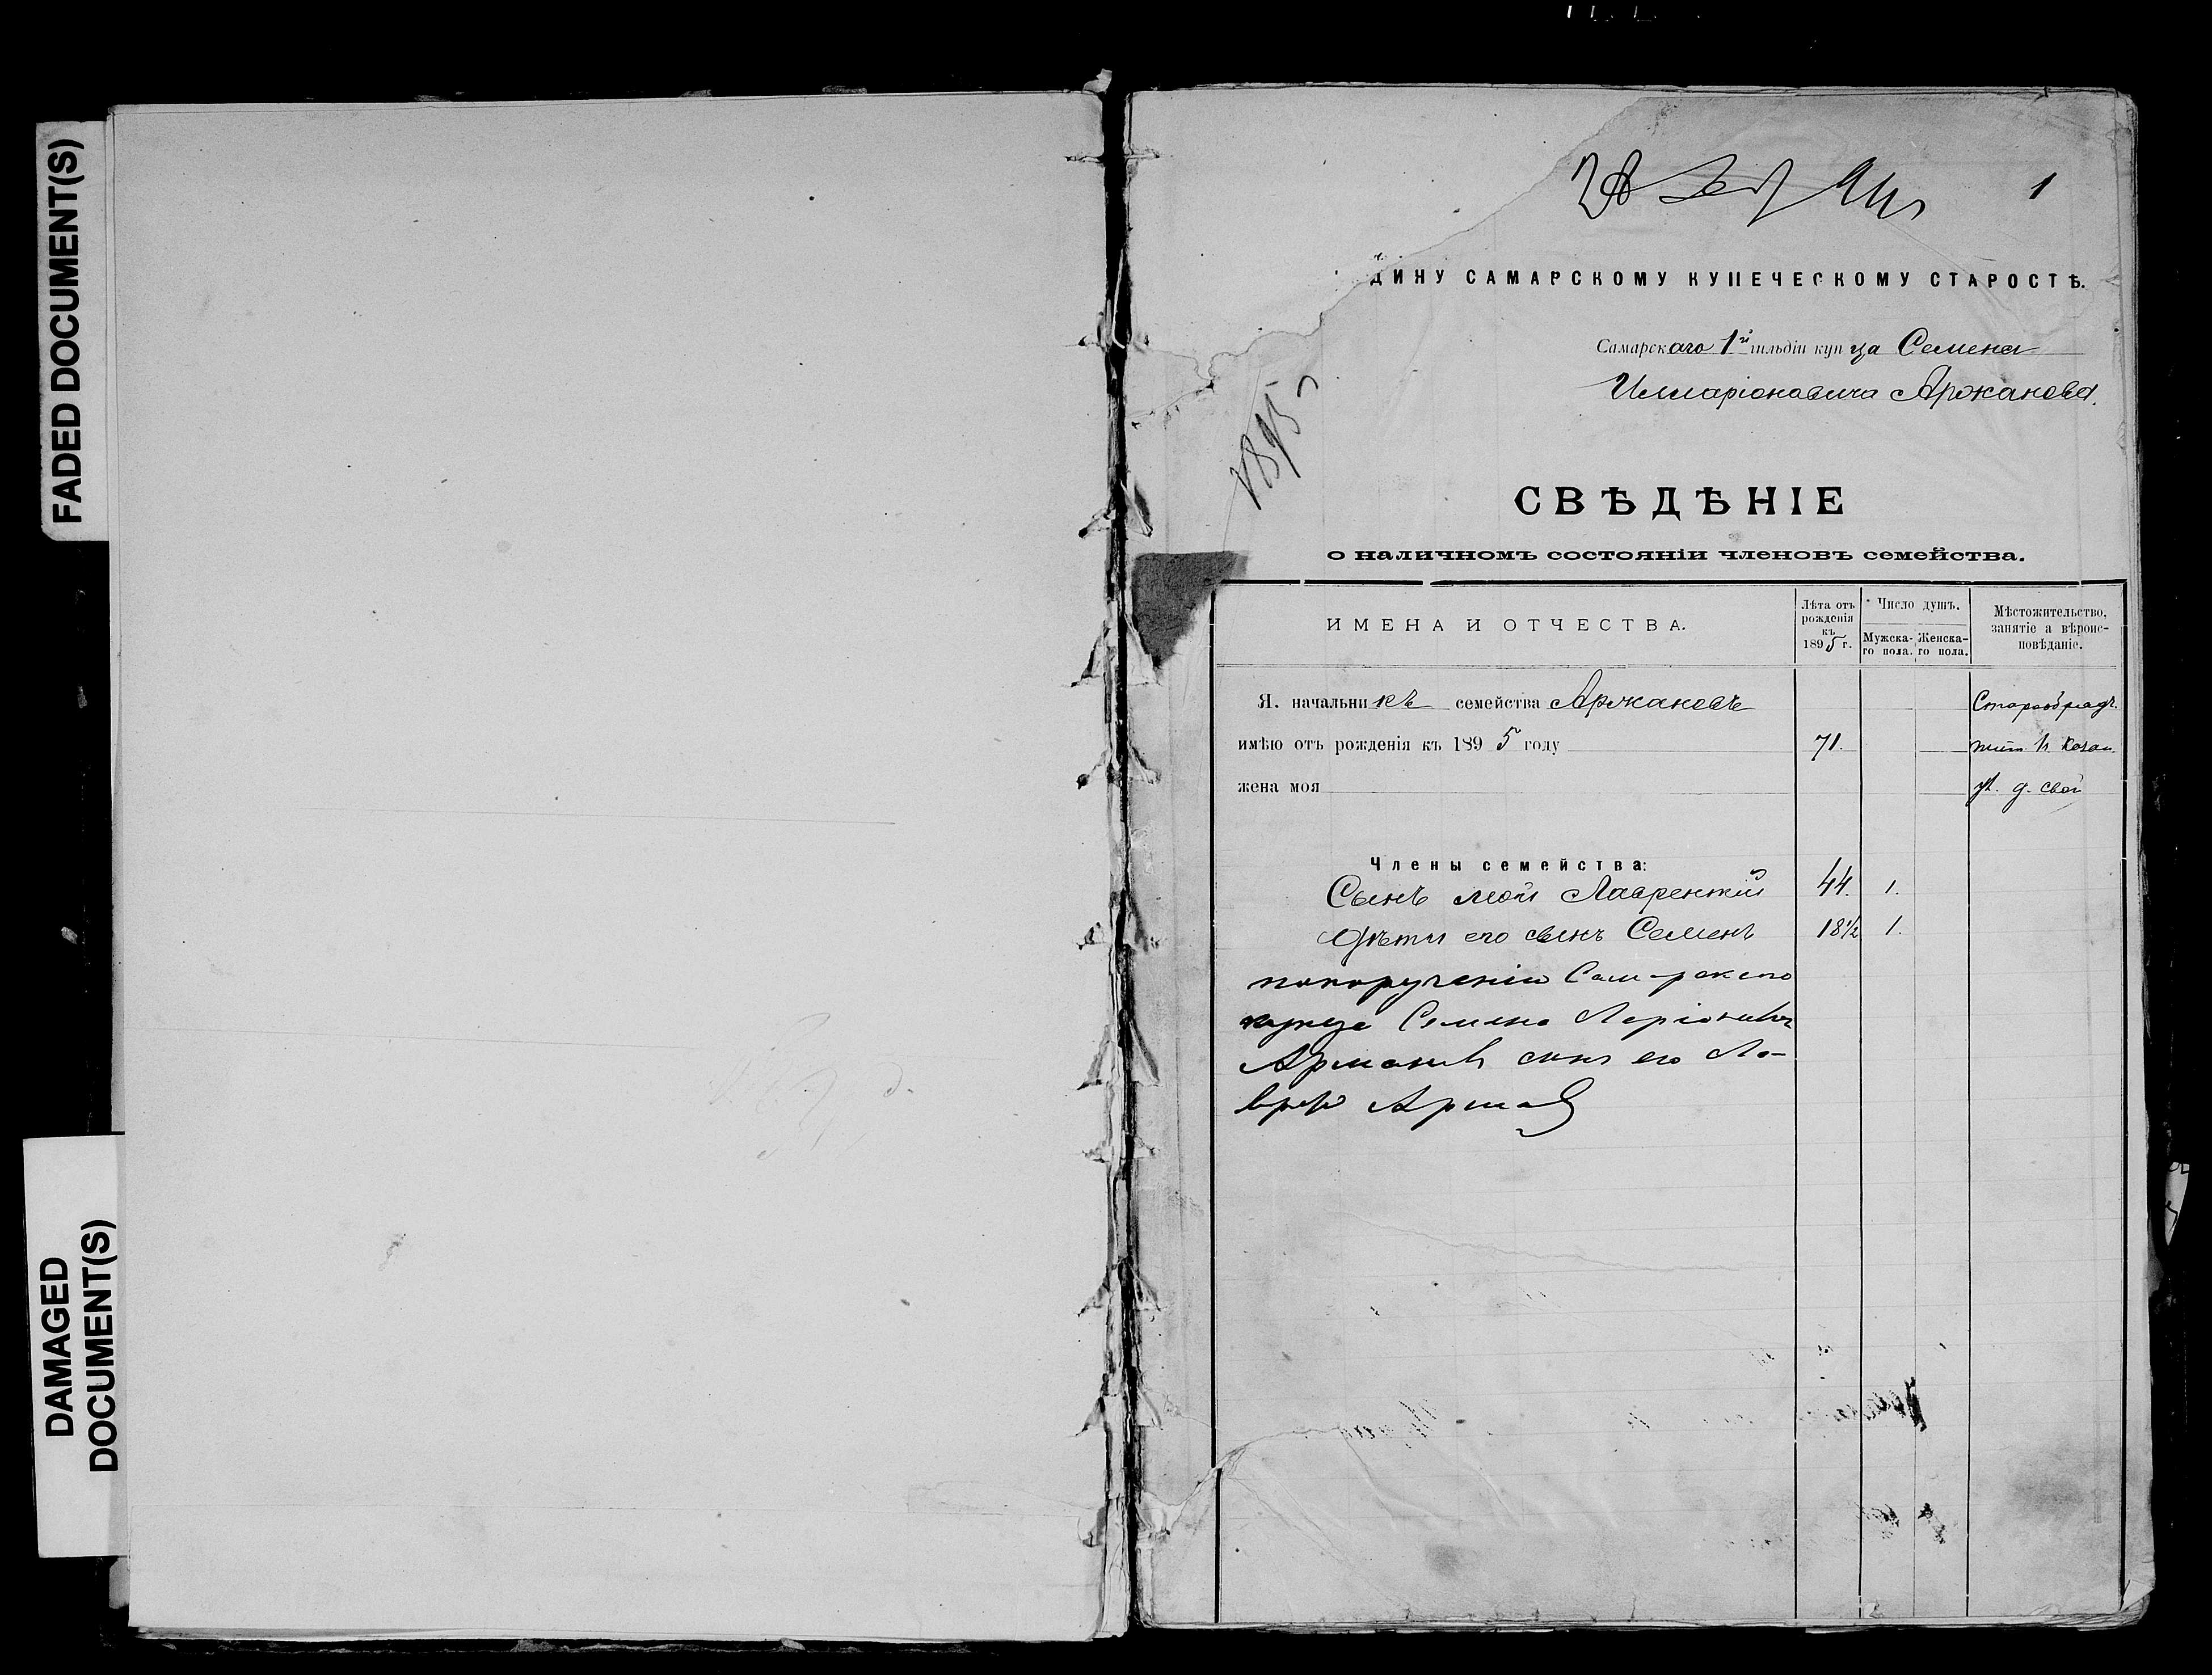 FADED DOCUMENT(S)
DAMAGED
DOCUMENT(S)
1
ДИНУ САМАРСКОМУ КУПЕЧЕСКОМУ СТАРОСТѢ.
Самарскаго 1й гильдіи купца Семена
Илларіоновича Аржанова.
1895
СВѢДѢНІЕ
о наличномъ состояніи членовъ семейства.
ИМЕНА И ОТЧЕСТВА.
Лѣта отъ рожденія къ 1895 г.
Число душъ.
Мужска-го пола.
Женска-го пола.
Мѣстожительство, занятіе а вѣроис-повѣданіе.
Я. начальникъ семейства Аржановъ
Старообрядч.
имѣю отъ рожденія къ 1895 году 71.
жена моя
д. свой
Члены семейства:
Сынъ мой Лаврентій 44. 1.
Дѣти его сынъ Семенъ 18½ 1.
по порученію Самарскаго
купца Семена
сынъ его Ла-